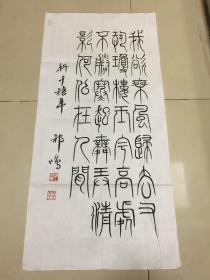 我欲乘風歸去又
恐瓊樓玉宇高處
不勝寒起舞弄清
影何似在人間
新千禧年
祁鳴